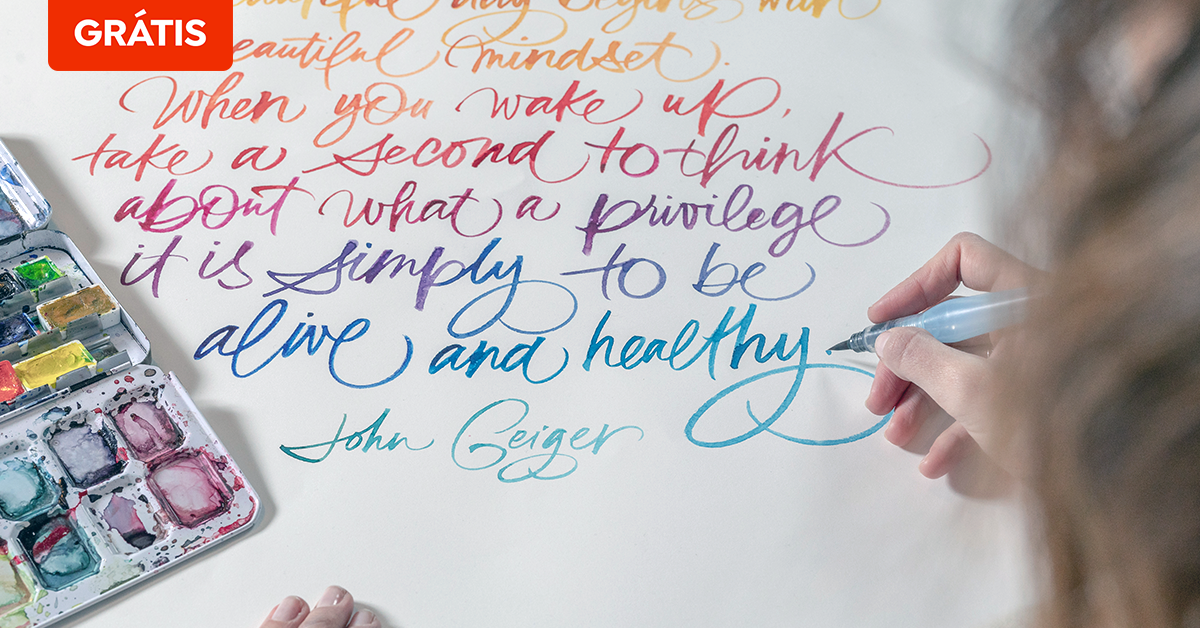 GRÁTIS
beautiful day begins with
beautiful mindset.
When you wake up,
take a second to think
about what a privilege
it is simply to be
alive and healthy.
John Geiger